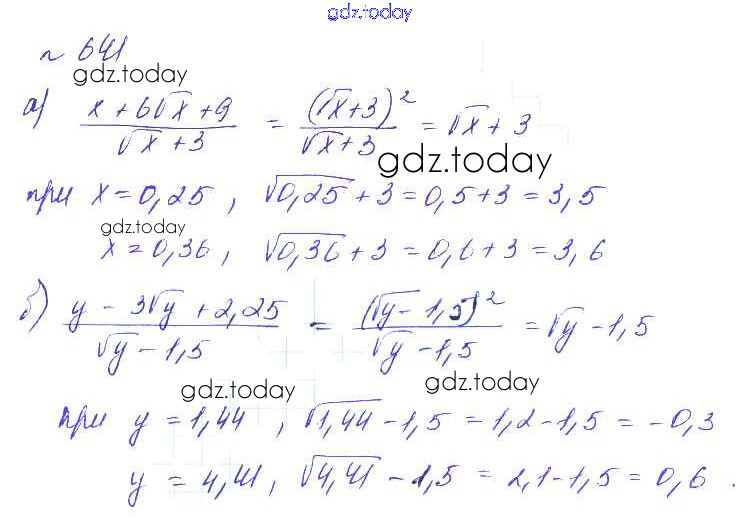 gdz.today
№ 641
gdz.today
а) (x + 6√x + 9)/(√x + 3) = (√x + 3)²/(√x + 3) = √x + 3
gdz.today
при x = 0,25 , √0,25 + 3 = 0,5 + 3 = 3,5
gdz.today
x = 0,36 , √0,36 + 3 = 0,6 + 3 = 3,6
б) (y - 3√y + 2,25)/(√y - 1,5) = (√y - 1,5)²/(√y - 1,5) = √y - 1,5
gdz.today gdz.today
при y = 1,44 , √1,44 - 1,5 = 1,2 - 1,5 = -0,3
y = 4,41 , √4,41 - 1,5 = 2,1 - 1,5 = 0,6 .
gdz.today